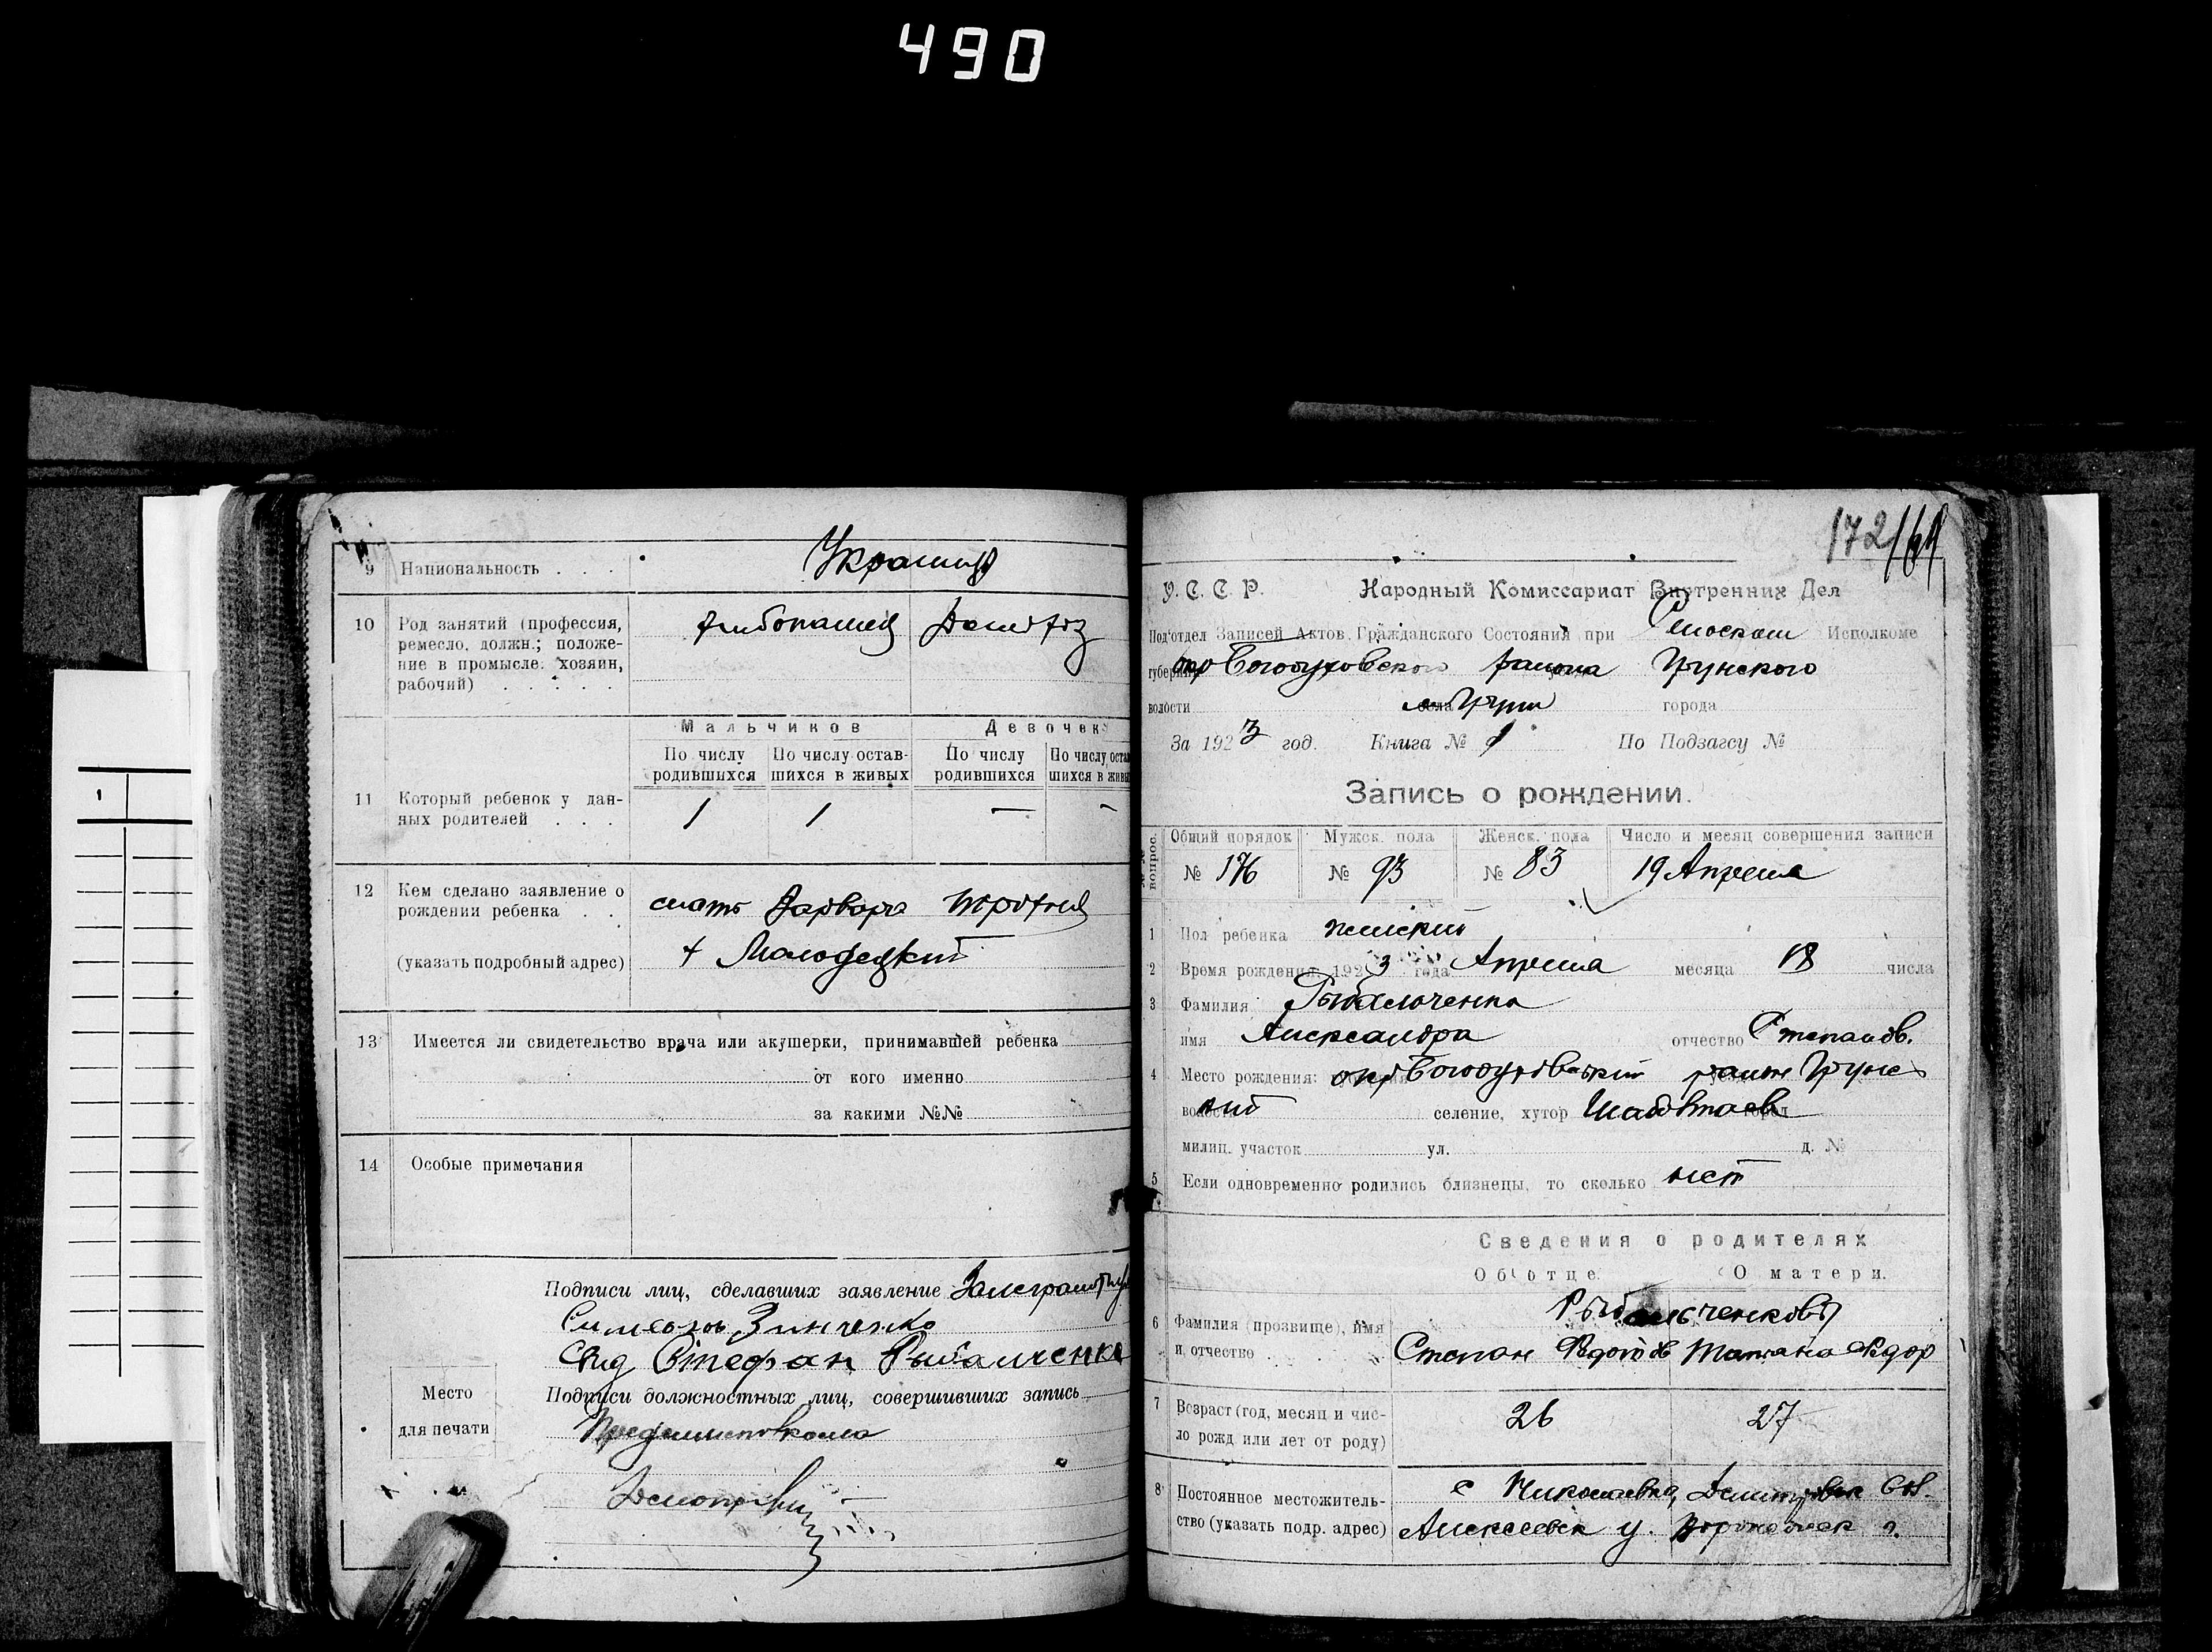 490
9 Национальность . . . Украинц
10 Род занятий (профессия, хлебопашец Домохоз
ремесло, должн.; положе-
ние в промысле: хозяин,
рабочий) . . . . .
Мальчиков Девочек
По числу родившихся По числу остав-шихся в живых По числу родившихся По числу остав-шихся в живы
11 Который ребенок у дан-
ных родителей . . . 1 1 — -
12 Кем сделано заявление о
рождении ребенка . . мать Варвара
(указать подробный адрес) х Молодецкий
13 Имеется ли свидетельство врача или акушерки, принимавшей ребенка
от кого именно
за какими №№
14 Особые примечания
Подписи лиц, сделавших заявление
Симеон Зинченко
Свид Стефан Рыбалченко
Место
для печати
Подписи должностных лиц, совершивших запись
Предисполкома
172 164
У. С. С. Р. Народный Комиссариат Внутренних Дел
Подотдел Записей Актов Гражданского Состояния при Исполкоме
губернии окр Богодуховского района Грунского
волости села Грунь города
За 1923 год. Книга № 1 По Подзагсу №
Запись о рождении.
№№ вопрос. Общий порядок Мужск. пола Женск. пола Число и месяц совершения записи
№ 176 № 93 № 83 19 Апреля
1 Пол ребенка женский
2 Время рождения: 1923 года Апреля месяца 18 числа
3 Фамилия Рыбальченко
имя Александра отчество Степанов.
4 Место рождения: окр Богодуховский район Грунс
волости кий селение, хутор
милиц. участок ул. д. №
5 Если одновременно родились близнецы, то сколько нет
Сведения о родителях
Об отце. О матери.
Рыбальченковы
6 Фамилия (прозвище), имя
и отчество Степан Федотов Татьяна Федор
7 Возраст (год, месяц и чис-
ло рожд или лет от роду) 26 27
8 Постоянное местожитель- с Николаевка, Дмитровск вол.
ство (указать подр. адрес) Алексеевск у. Воронежск г.